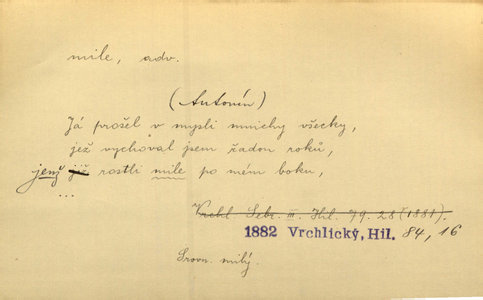 mile, adv.
(Antonín)
Já prošel v mysli mnichy všecky,
jež vychoval jsem řadou roků,
jenž již rostli mile po mém boku,
...
Vrchl Sebr. III. Hil. 79. 28 (1881).
1882 Vrchlický, Hil. 84, 16
Srovn. milý.